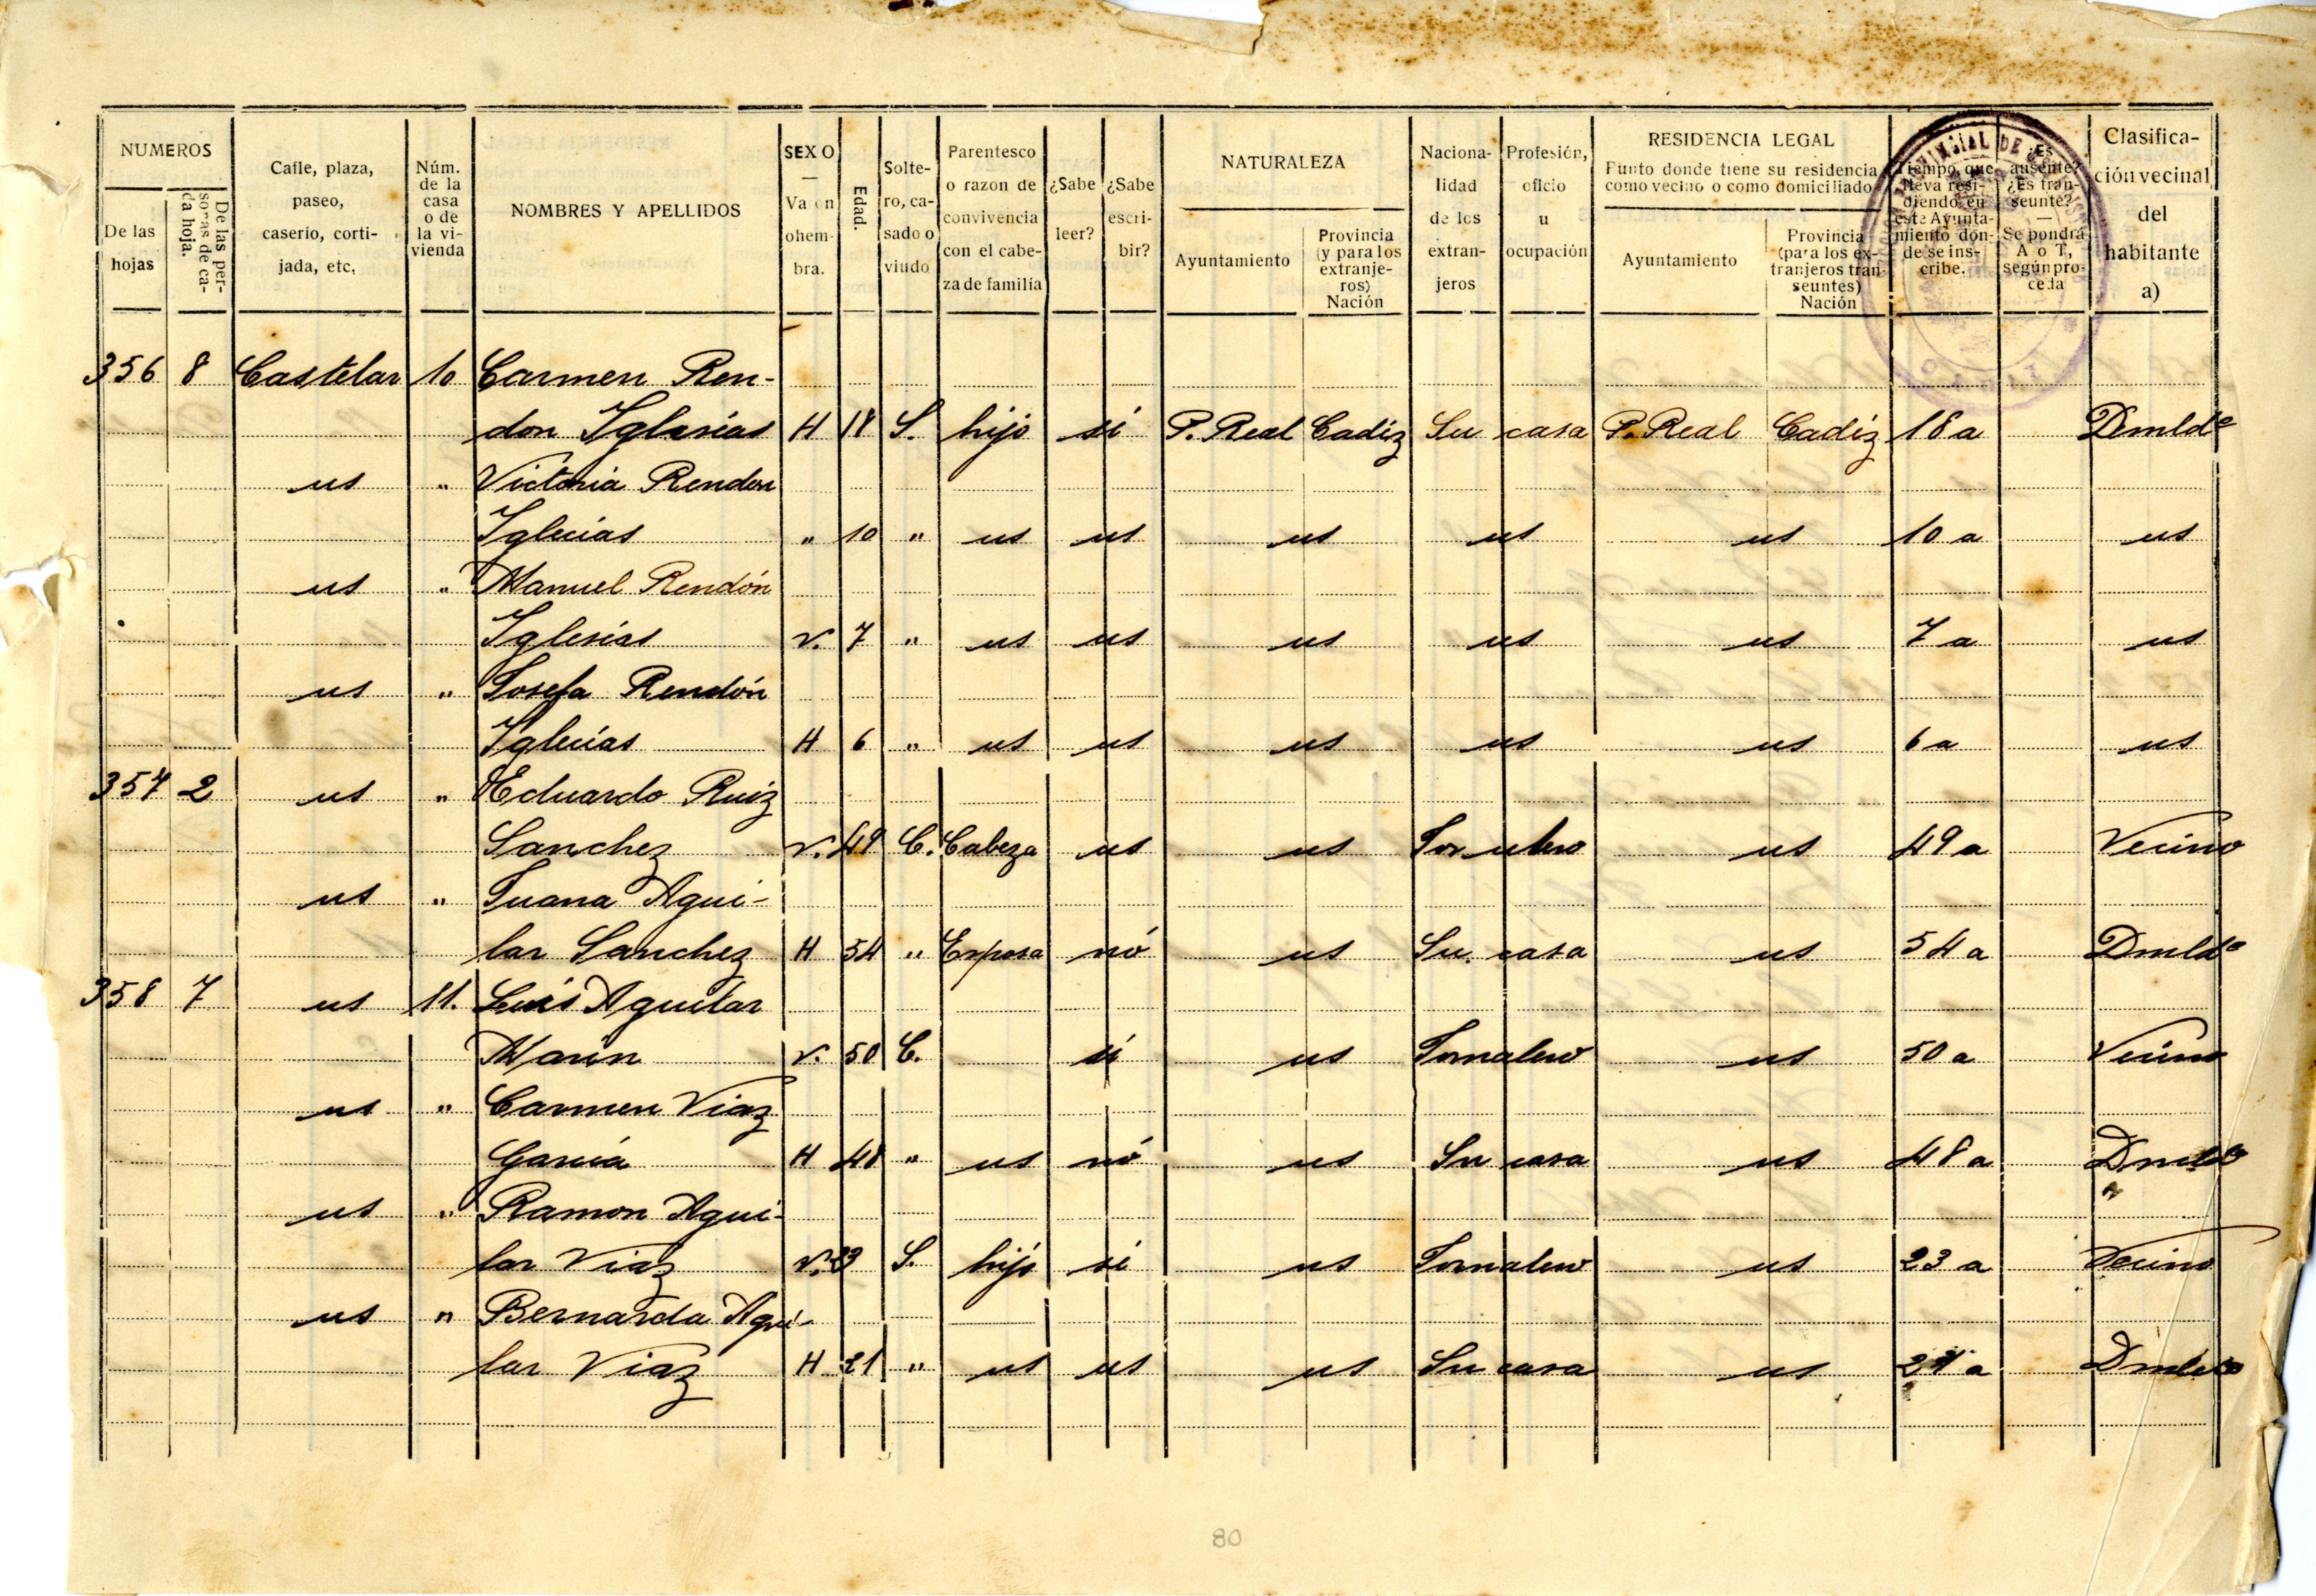 NUMEROS
De las hojas
De las personas de cada hoja.
Calle, plaza, paseo, caserío, cortijada, etc.
Núm. de la casa o de la vivienda
NOMBRES Y APELLIDOS
SEXO — Varon o hembra.
Edad.
Soltero, casado o viudo
Parentesco o razon de convivencia con el cabeza de familia
¿Sabe leer?
¿Sabe escribir?
NATURALEZA
Ayuntamiento
Provincia (y para los extranjeros) Nación
Nacionalidad de los extranjeros
Profesión, oficio u ocupación
RESIDENCIA LEGAL
Punto donde tiene su residencia como vecino o como domiciliado
Ayuntamiento
Provincia (para los extranjeros transeuntes) Nación
Tiempo que lleva residiendo en este Ayuntamiento donde se inscribe.
¿Es ausente? ¿Es transeunte? — Se pondrá A o T, según proceda
Clasificación vecinal del habitante a)
356 8 Castelar 10 Carmen Ren-
don Iglesias H 18 S. hijo si P. Real Cadiz Su casa P. Real Cadiz 18 a Dmldo
us " Victoria Rendon
Iglecias " 10 " us us us us us 10 a us
us " Manuel Rendón
Iglesias v. 7 " us us us us us 7 a us
us " Josefa Rendón
Iglecias H 6 " us us us us us 6 a us
357 2 us " Eduardo Ruiz
Sanchez v. 49 C. Cabeza us us us 49 a Vecino
us " Juana Agui-
lar Sanchez H 54 " Esposa nó us Su casa us 54 a Dmldo
358 7 us 11. Luis Aguilar
Marin v. 50 C. si us Jornalero us 50 a Vecino
us " Carmen Viaz
Garcia H 48 " us nó us Su casa us 48 a Dmldo
us " Ramon Agui-
lar Viaz v. 23 S. hijo si us Jornalero us 23 a Vecino
us " Bernarda Agui-
lar Viaz H 21 " us us us Su casa us 21 a Dmldo
80